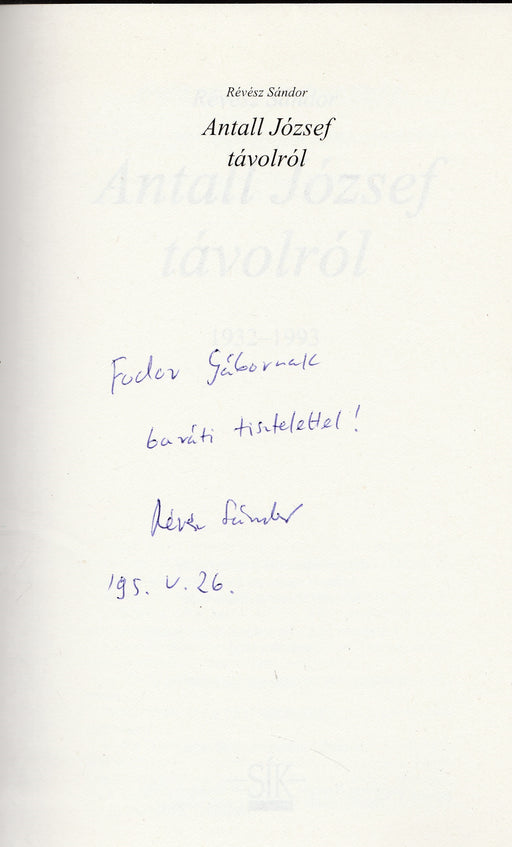 Révész Sándor
Antall József
távolról
1932–1993
Fodor Gábornak
baráti tisztelettel!
Révész Sándor
'95. V. 26.
SÍK